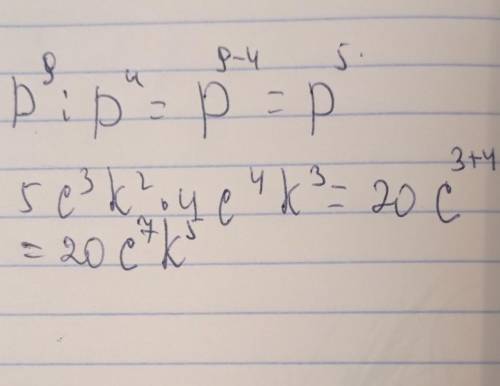 p⁹ : p⁴ = p⁹⁻⁴ = p⁵.
5c³k² · 4c⁴k³ = 20c³⁺⁴
= 20c⁷k⁵